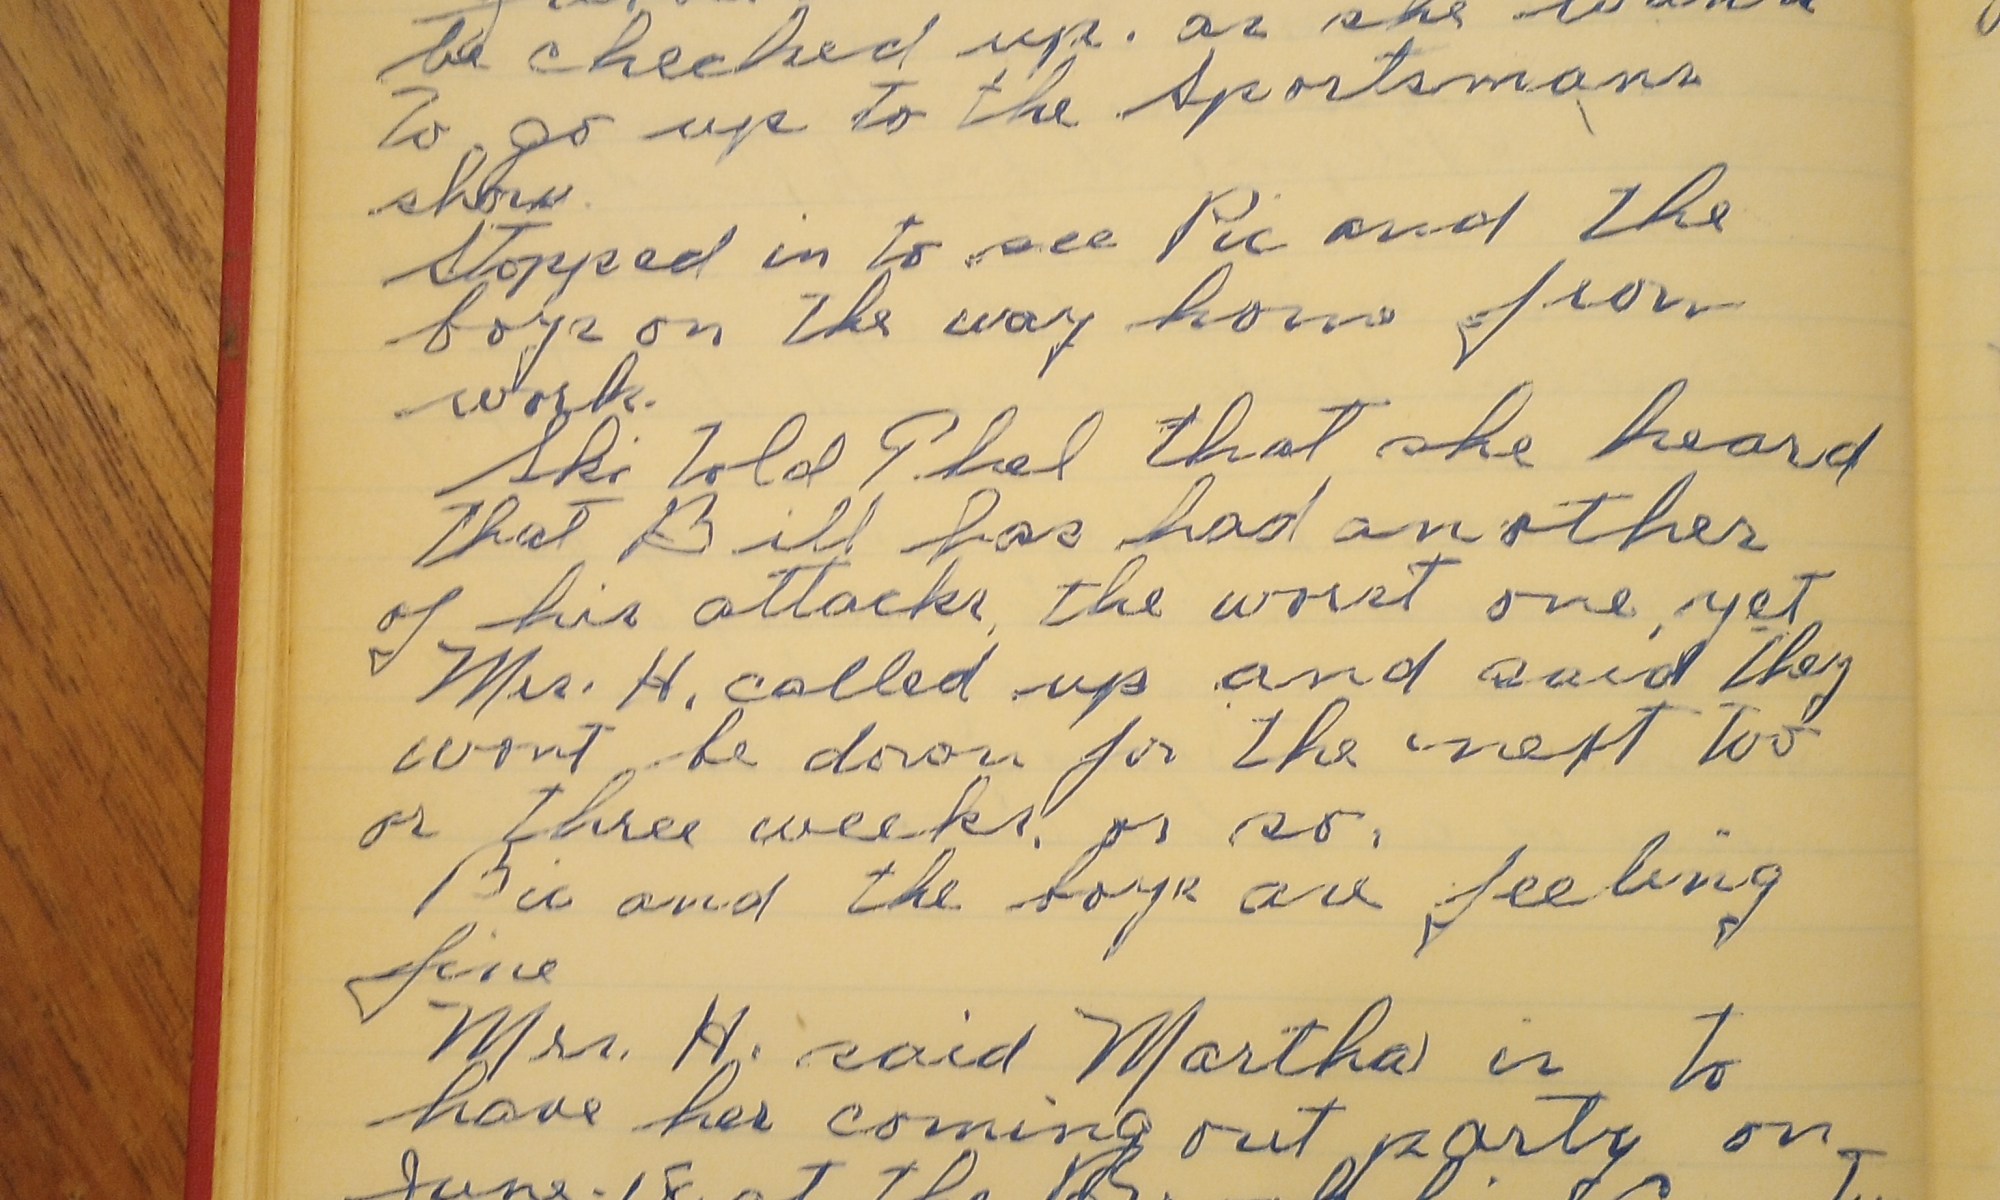 be checked up. as she
to go up to the Sportsmans
show.
Stopped in to see Pic and the
boys on the way home from
work.
Ski told Phel that she heard
that Bill has had another
of his attacks, the worst one, yet
Mrs. H. called up and said they
wont be down for the next two
or three weeks, or so.
Pic and the boys are feeling
fine
Mrs. H. said Martha is to
have her coming out party on
June 18 at the